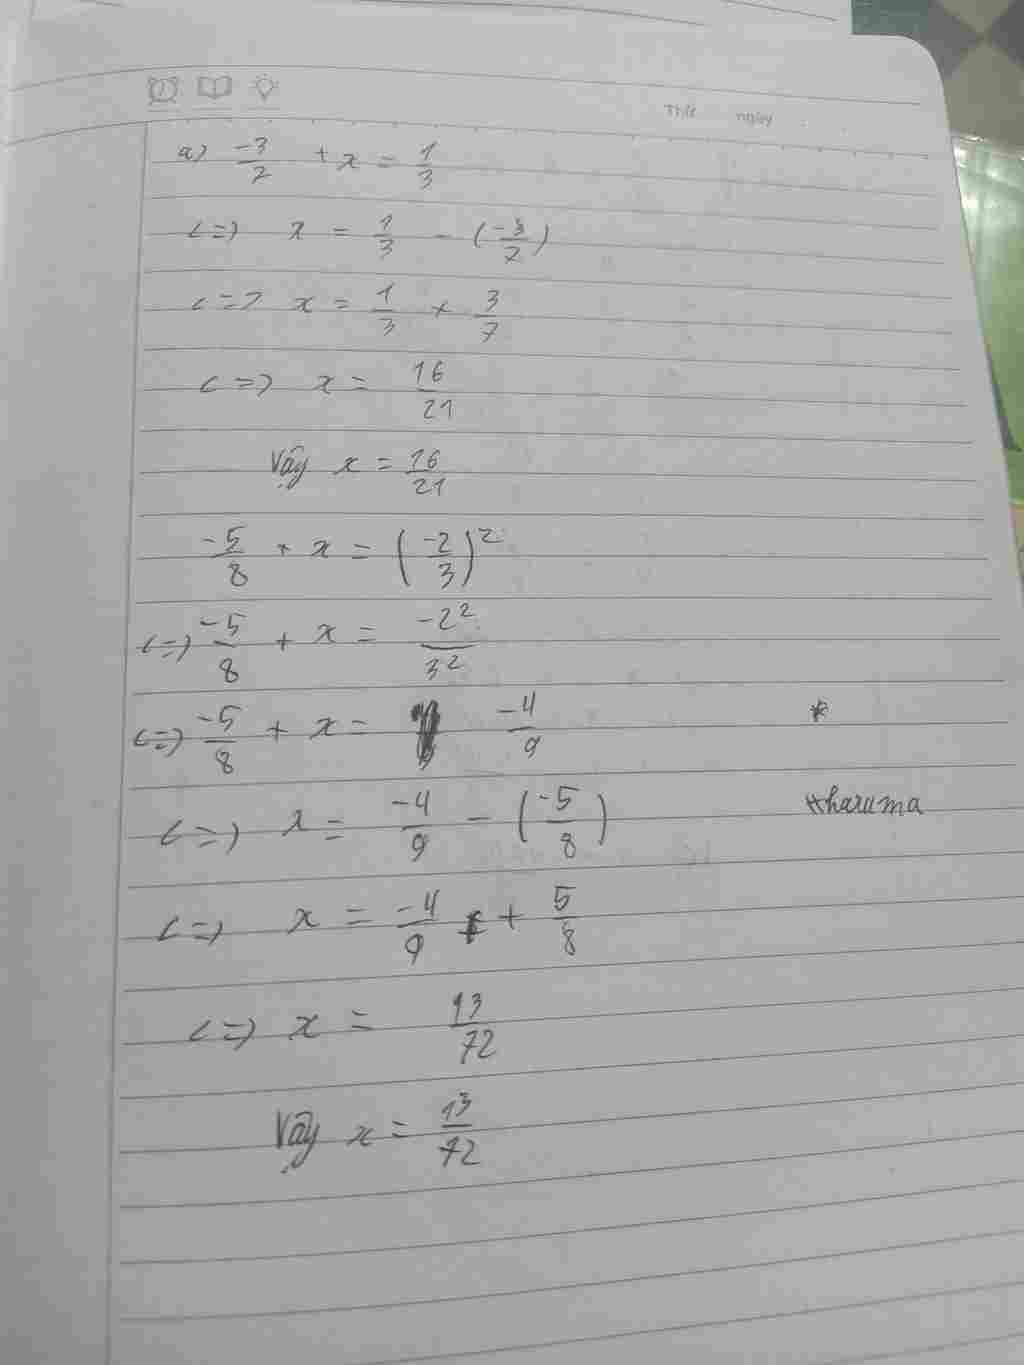 Thứ ngày
a) \frac{-3}{7} + x = \frac{1}{3}
<=> x = \frac{1}{3} - (\frac{-3}{7})
<=> x = \frac{1}{3} + \frac{3}{7}
<=> x = \frac{16}{21}
Vậy x = \frac{16}{21}
\frac{-5}{8} + x = (\frac{-2}{3})^2
<=> \frac{-5}{8} + x = \frac{-2^2}{3^2}
<=> \frac{-5}{8} + x = \frac{-4}{9} *
<=> x = \frac{-4}{9} - (\frac{-5}{8}) *haruma
<=> x = \frac{-4}{9} + \frac{5}{8}
<=> x = \frac{13}{72}
Vậy x = \frac{13}{72}